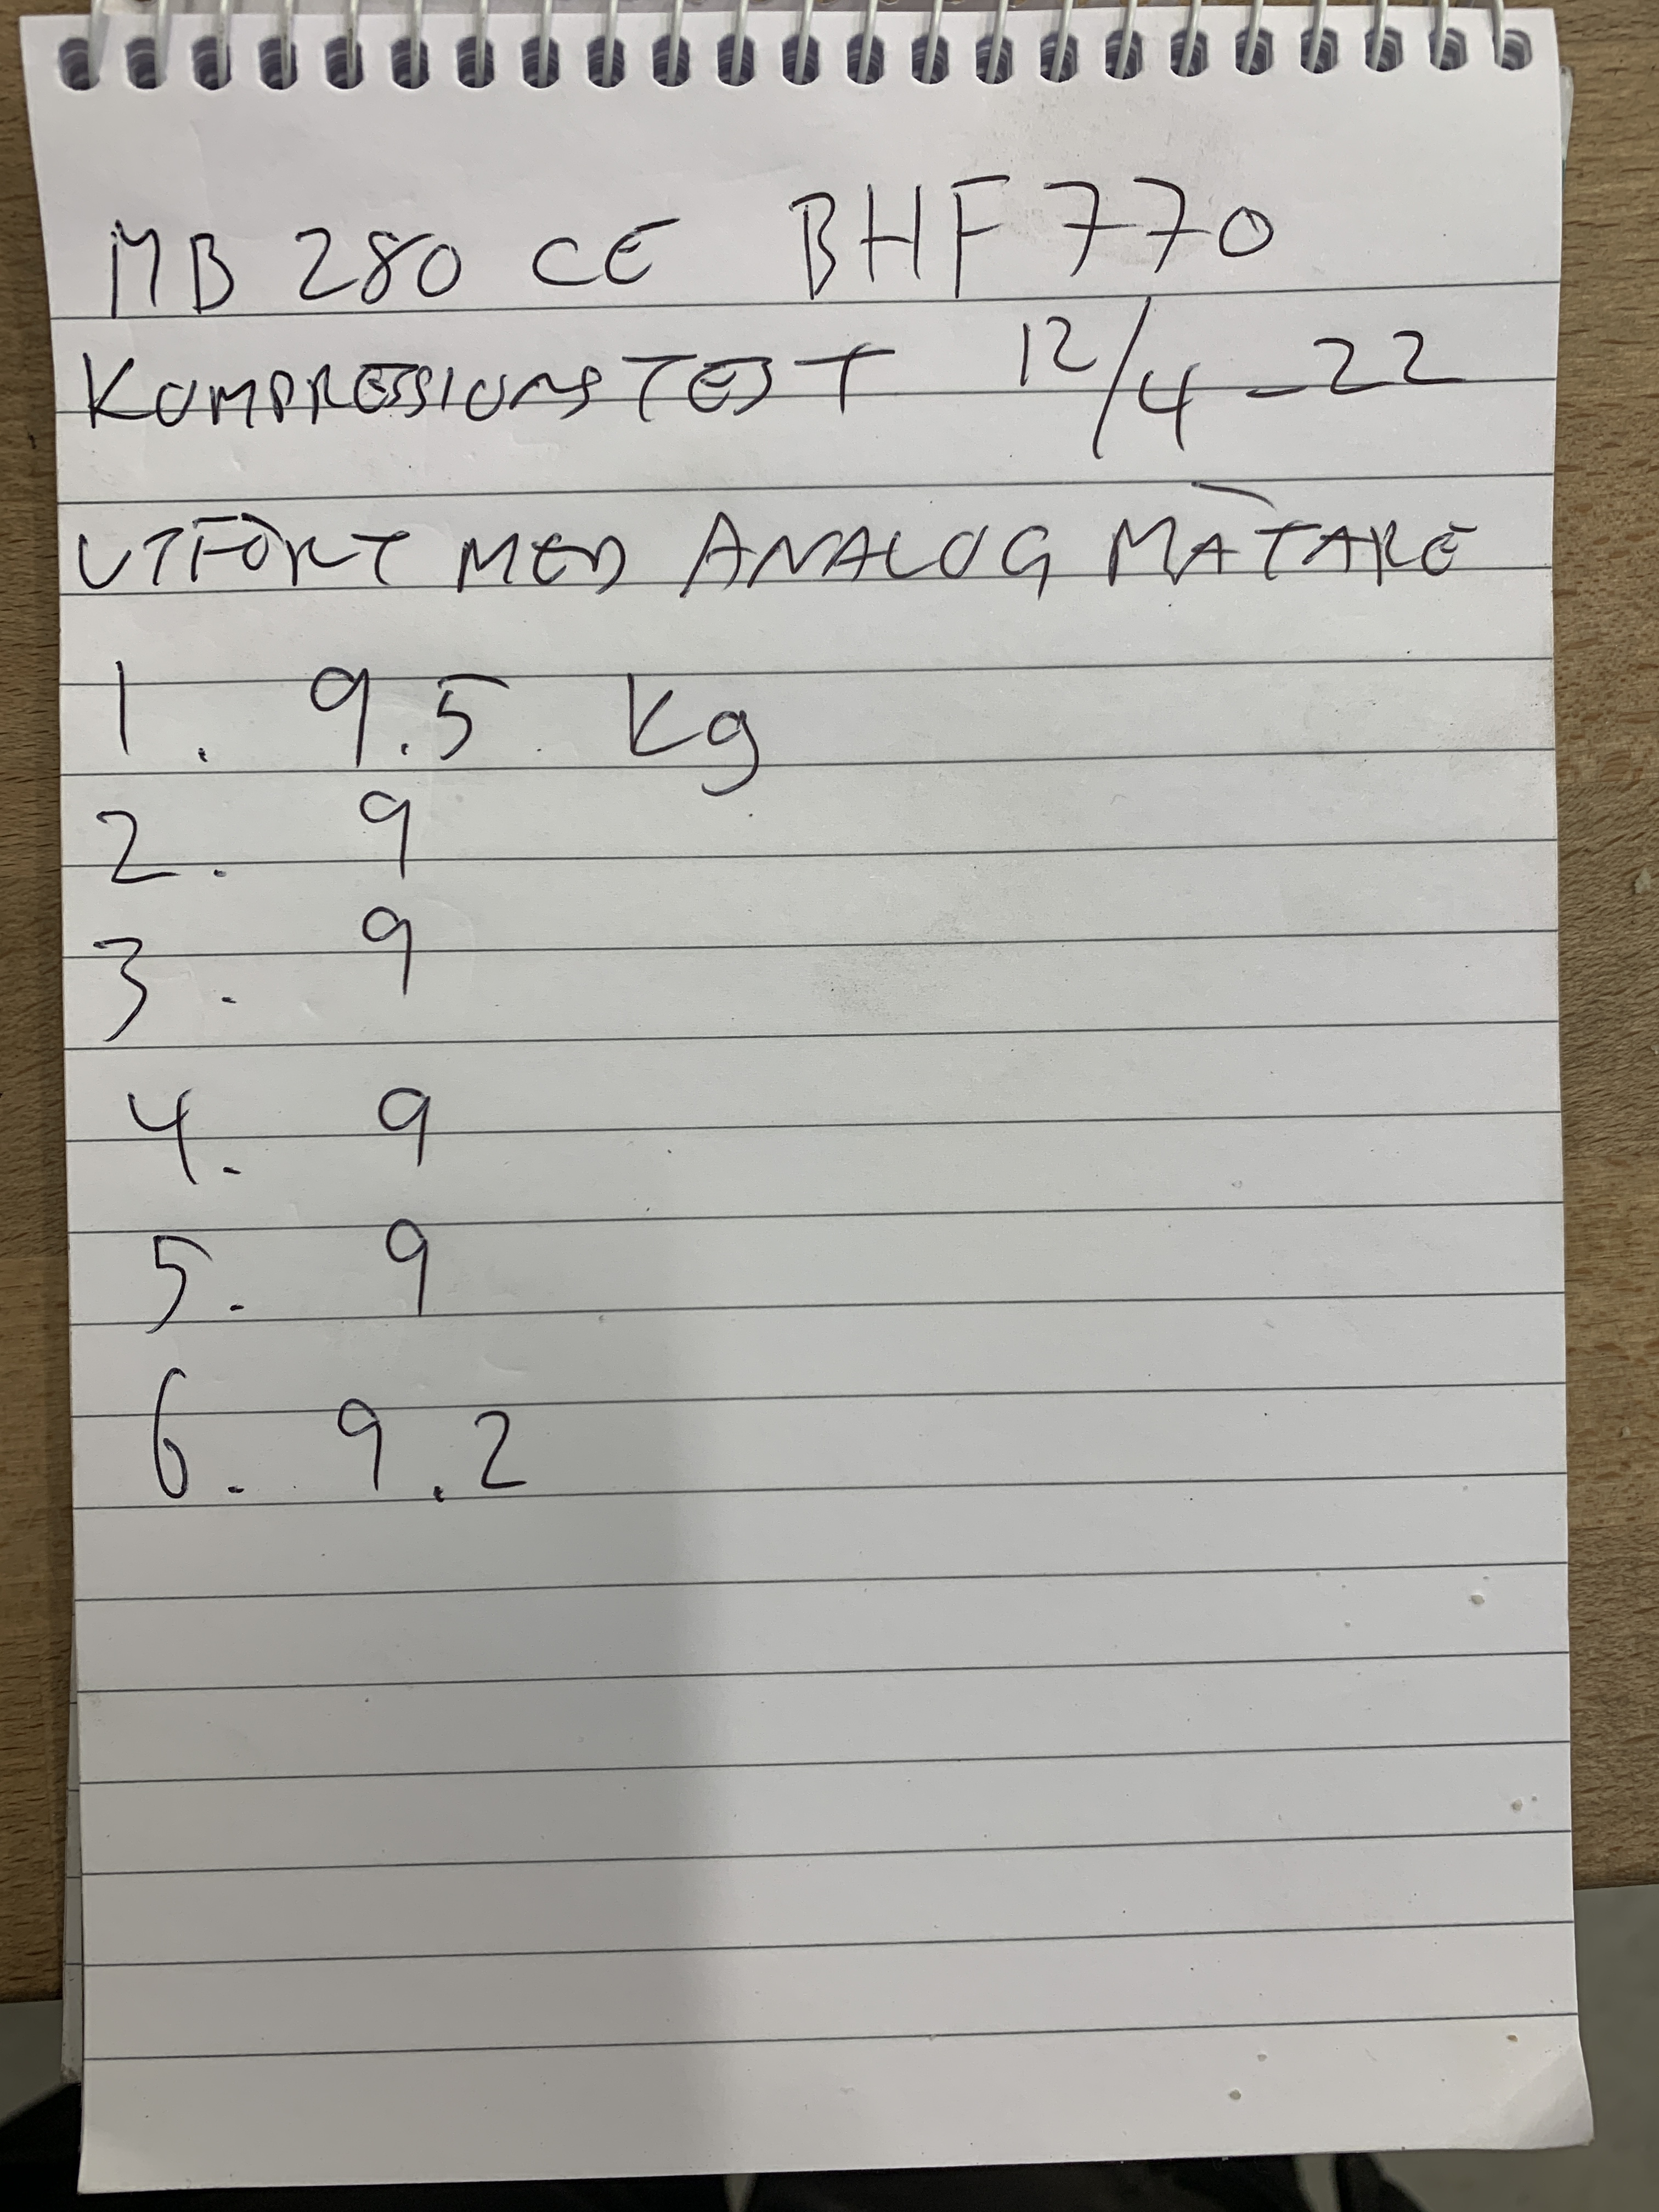 MB 280 CE BHF 770
KOMPRESSIONSTEST 12/4-22
UTFÖRT MED ANALOG MÄTARE
1. 9.5 Kg
2. 9
3. 9
4. 9
5. 9
6. 9.2